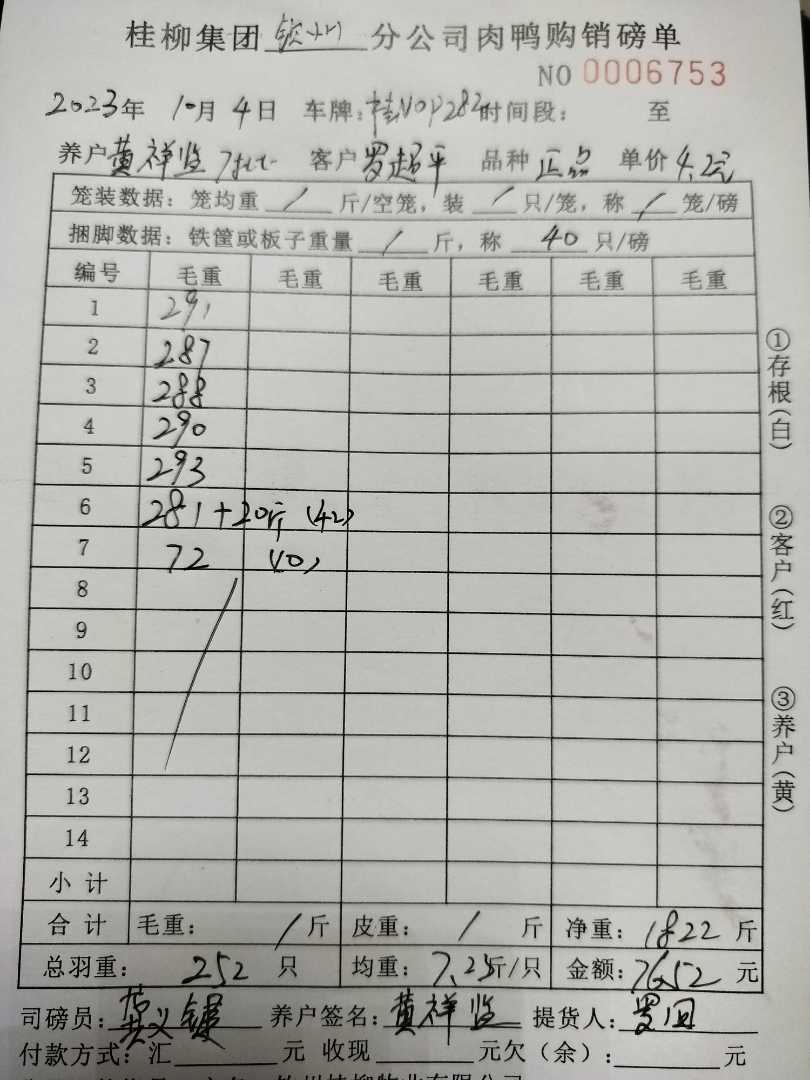 桂柳集团 钦州 分公司肉鸭购销磅单
NO 0006753
2023年 10月 4日 车牌: 时间段: 至
养户 黄祥监 客户 罗超平 品种 正品 单价 4.2元
笼装数据: 笼均重 / 斤/空笼, 装 / 只/笼, 称 / 笼/磅
捆脚数据: 铁筐或板子重量 / 斤, 称 40 只/磅
编号 毛重 毛重 毛重 毛重 毛重 毛重
1 291
2 287
3 288
4 290
5 293
6 281+20斤 (42)
7 72 (10)
8
9
10
11
12
13
14
小计
合计 毛重: / 斤 皮重: / 斤 净重: 1822 斤
总羽重: 252 只 均重: 7.23斤/只 金额: 7652 元
司磅员: 养户签名: 黄祥监 提货人:
付款方式: 汇 元 收现 元欠(余): 元
①存根(白)
②客户(红)
③养户(黄)